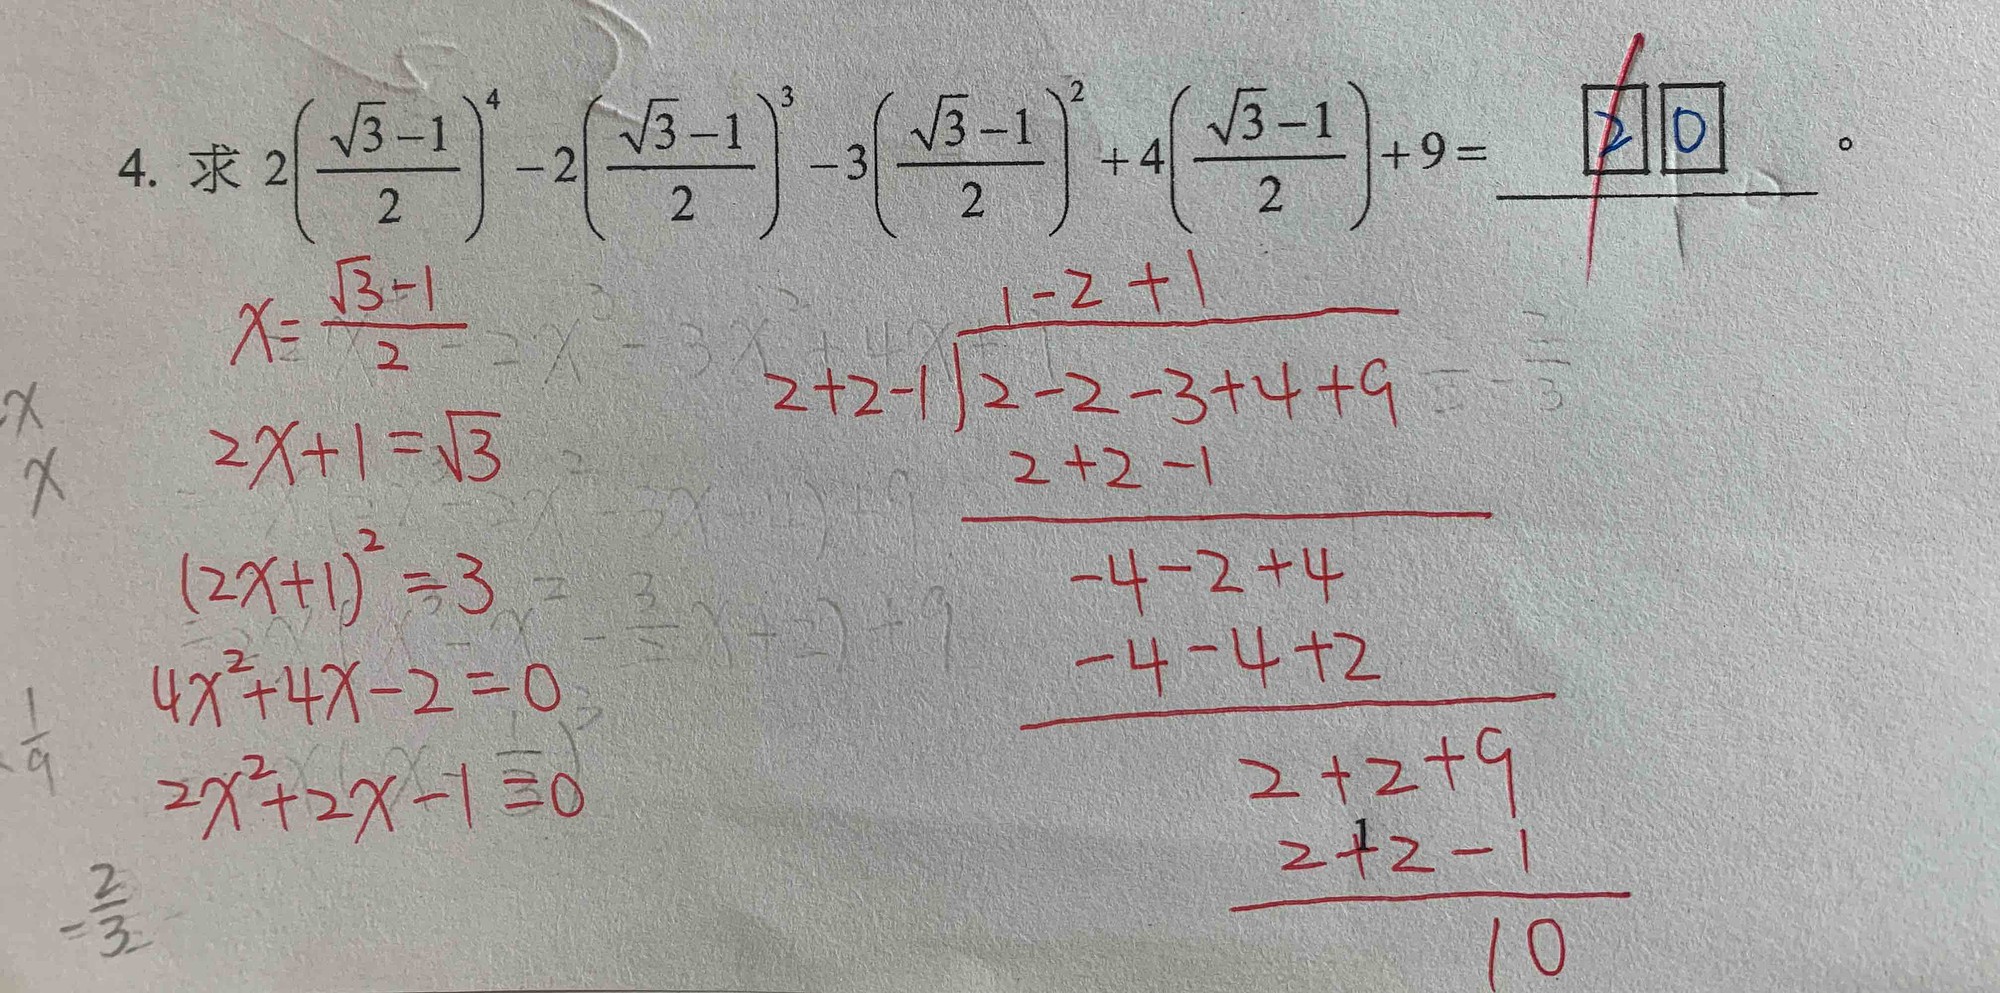 4. 求 2((√3-1)/2)^4 -2((√3-1)/2)^3 -3((√3-1)/2)^2 +4((√3-1)/2)+9= 2 0 。
x=(√3-1)/2
2x+1=√3
(2x+1)^2=3
4x^2+4x-2=0
2x^2+2x-1=0
1-2+1
2+2-1 ) 2-2-3+4+9
2+2-1
-4-2+4
-4-4+2
2+2+9
2+2-1
10
1
x
x
1/9
-2/3